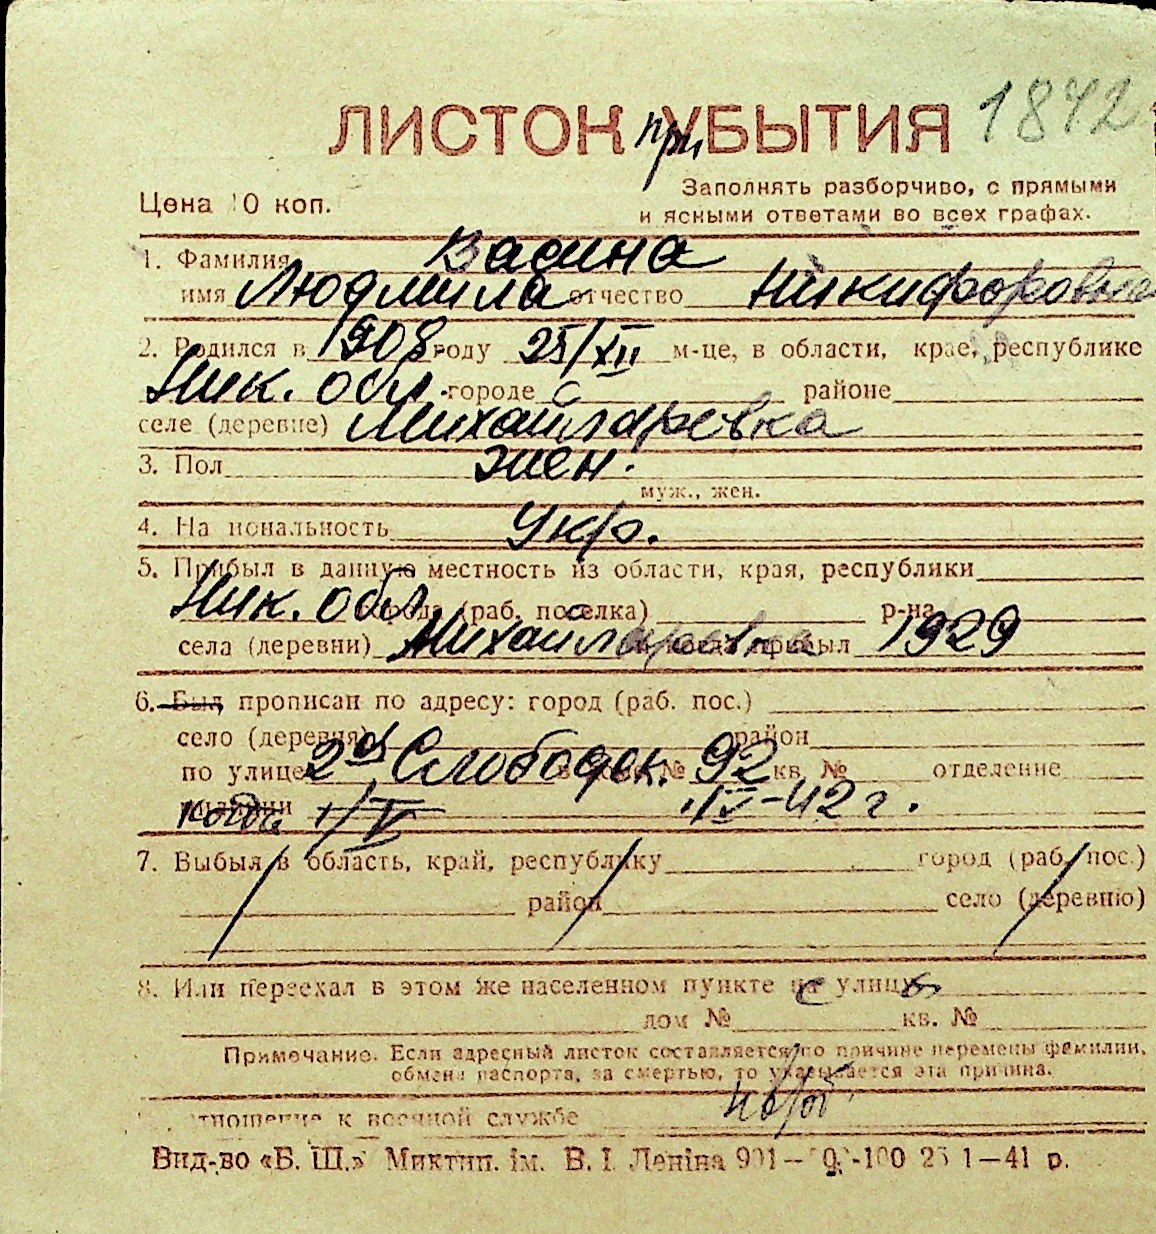 ЛИСТОК при УБЫТИЯ 1842
Цена 10 коп.
Заполнять разборчиво, с прямыми
и ясными ответами во всех графах.
1. Фамилия Васина
имя Людмила отчество Никифоровна
2. Родился в 1908 году 25/XII м-це, в области, крае, республике
Ник. обл. городе с районе
селе (деревне) Михайларевка
3. Пол жен.
муж., жен.
4. Национальность Укр.
5. Прибыл в данную местность из области, края, республики
Ник. обл города (раб. поселка) р-на
села (деревни) Михайларевка когда прибыл 1929
6. Был прописан по адресу: город (раб. пос.)
село (деревня) район
по улице 2ая Слободск. № 92 кв. № отделение
милиции когда 1/V 1/IV-42 г.
7. Выбыл в область, край, республику город (раб. пос.)
район село (деревню)
8. Или переехал в этом же населенном пункте на улицу
дом № кв. №
Примечание. Если адресный листок составляется по причине перемены фамилии,
обмена паспорта, за смертью, то указывается эта причина.
отношение к военной службе
Вид-во «Б. Ш.» Миктип. ім. В. І. Леніна 1—41 р.